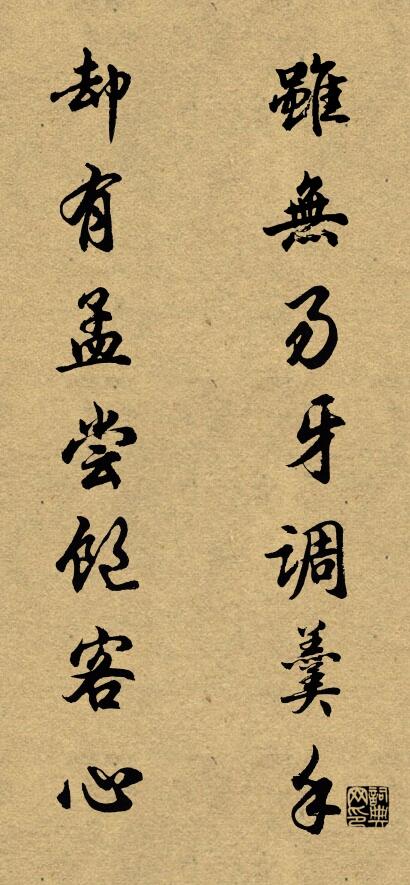 雖無易牙調羹手
却有孟尝飽客心
詞典
网印